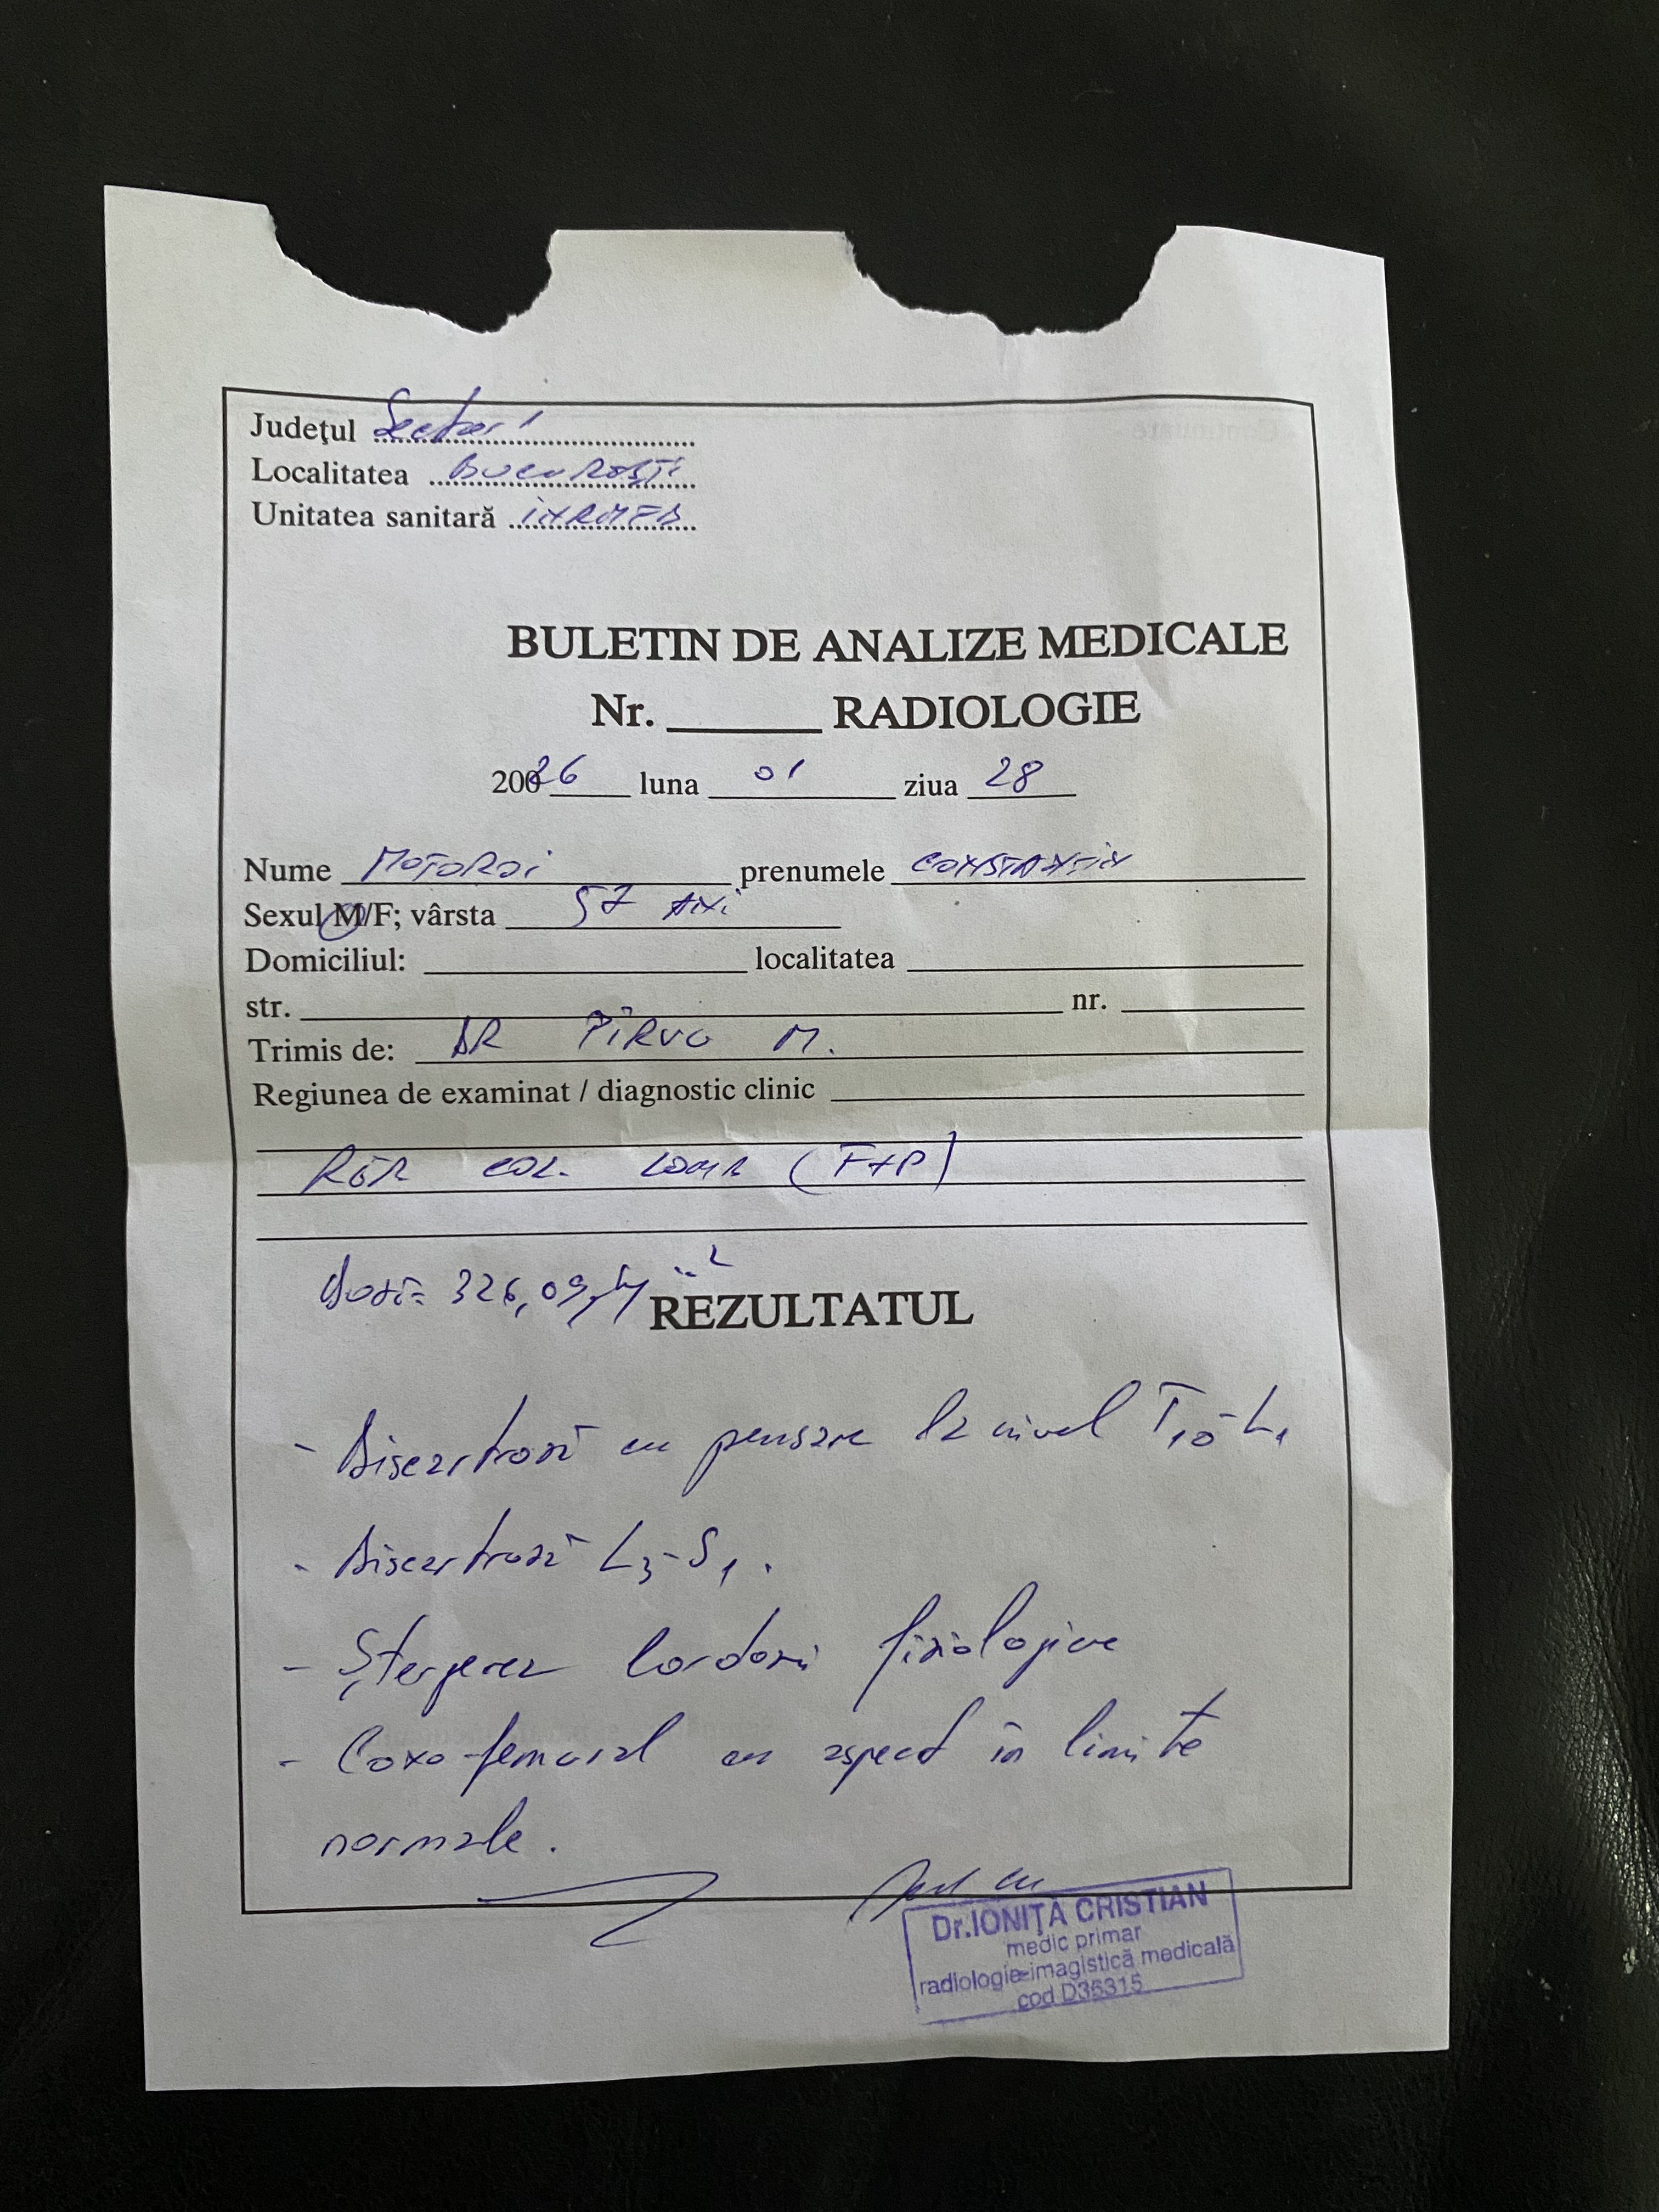 Judeţul Sector 1
Localitatea București
Unitatea sanitară
BULETIN DE ANALIZE MEDICALE
Nr. ______ RADIOLOGIE
2026 luna 01 ziua 28
Nume MOTOROI prenumele CONSTANTIN
Sexul M/F; vârsta 57 ANI
Domiciliul: ______ localitatea ______
str. ______ nr. ______
Trimis de: DR PÎRVU M.
Regiunea de examinat / diagnostic clinic
RGR COL. LOMB (F+P)
Doză= 326,09
REZULTATUL
- Discartroză cu pensare la nivel T10-L1
- Discartroză L3-S1.
- Ștergerea lordozei fiziologice
- Coxo-femural cu aspect în limite
normale.
Dr.IONIŢĂ CRISTIAN
medic primar
radiologie-imagistică medicală
cod D36315